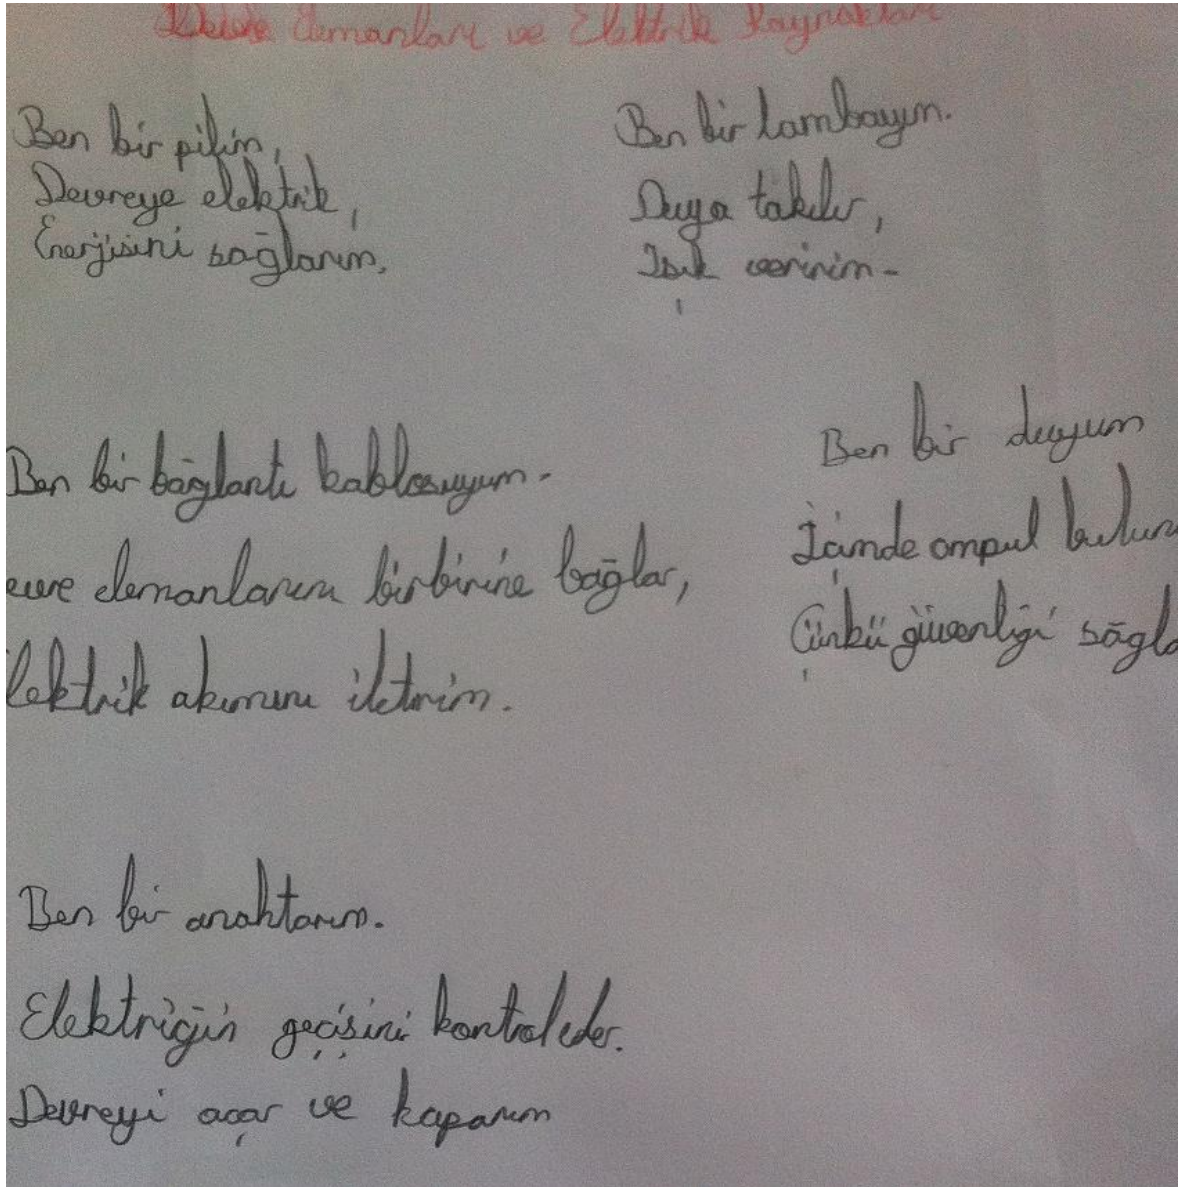 Devre elemanları ve Elektrik Kaynakları
Ben bir pilim,
Devreye elektrik,
Enerjisini sağlarım.
Ben bir lambayım.
Duya takılır,
Işık veririm-
Ben bir bağlantı kablosuyum-
evre elemanlarını birbirine bağlar,
lektrik akımını iletirim.
Ben bir duyum
İçimde ampul bulunu
Çünkü güvenliği sağla
Ben bir anahtarım.
Elektriğin geçişini kontrol eder.
Devreyi açar ve kaparım